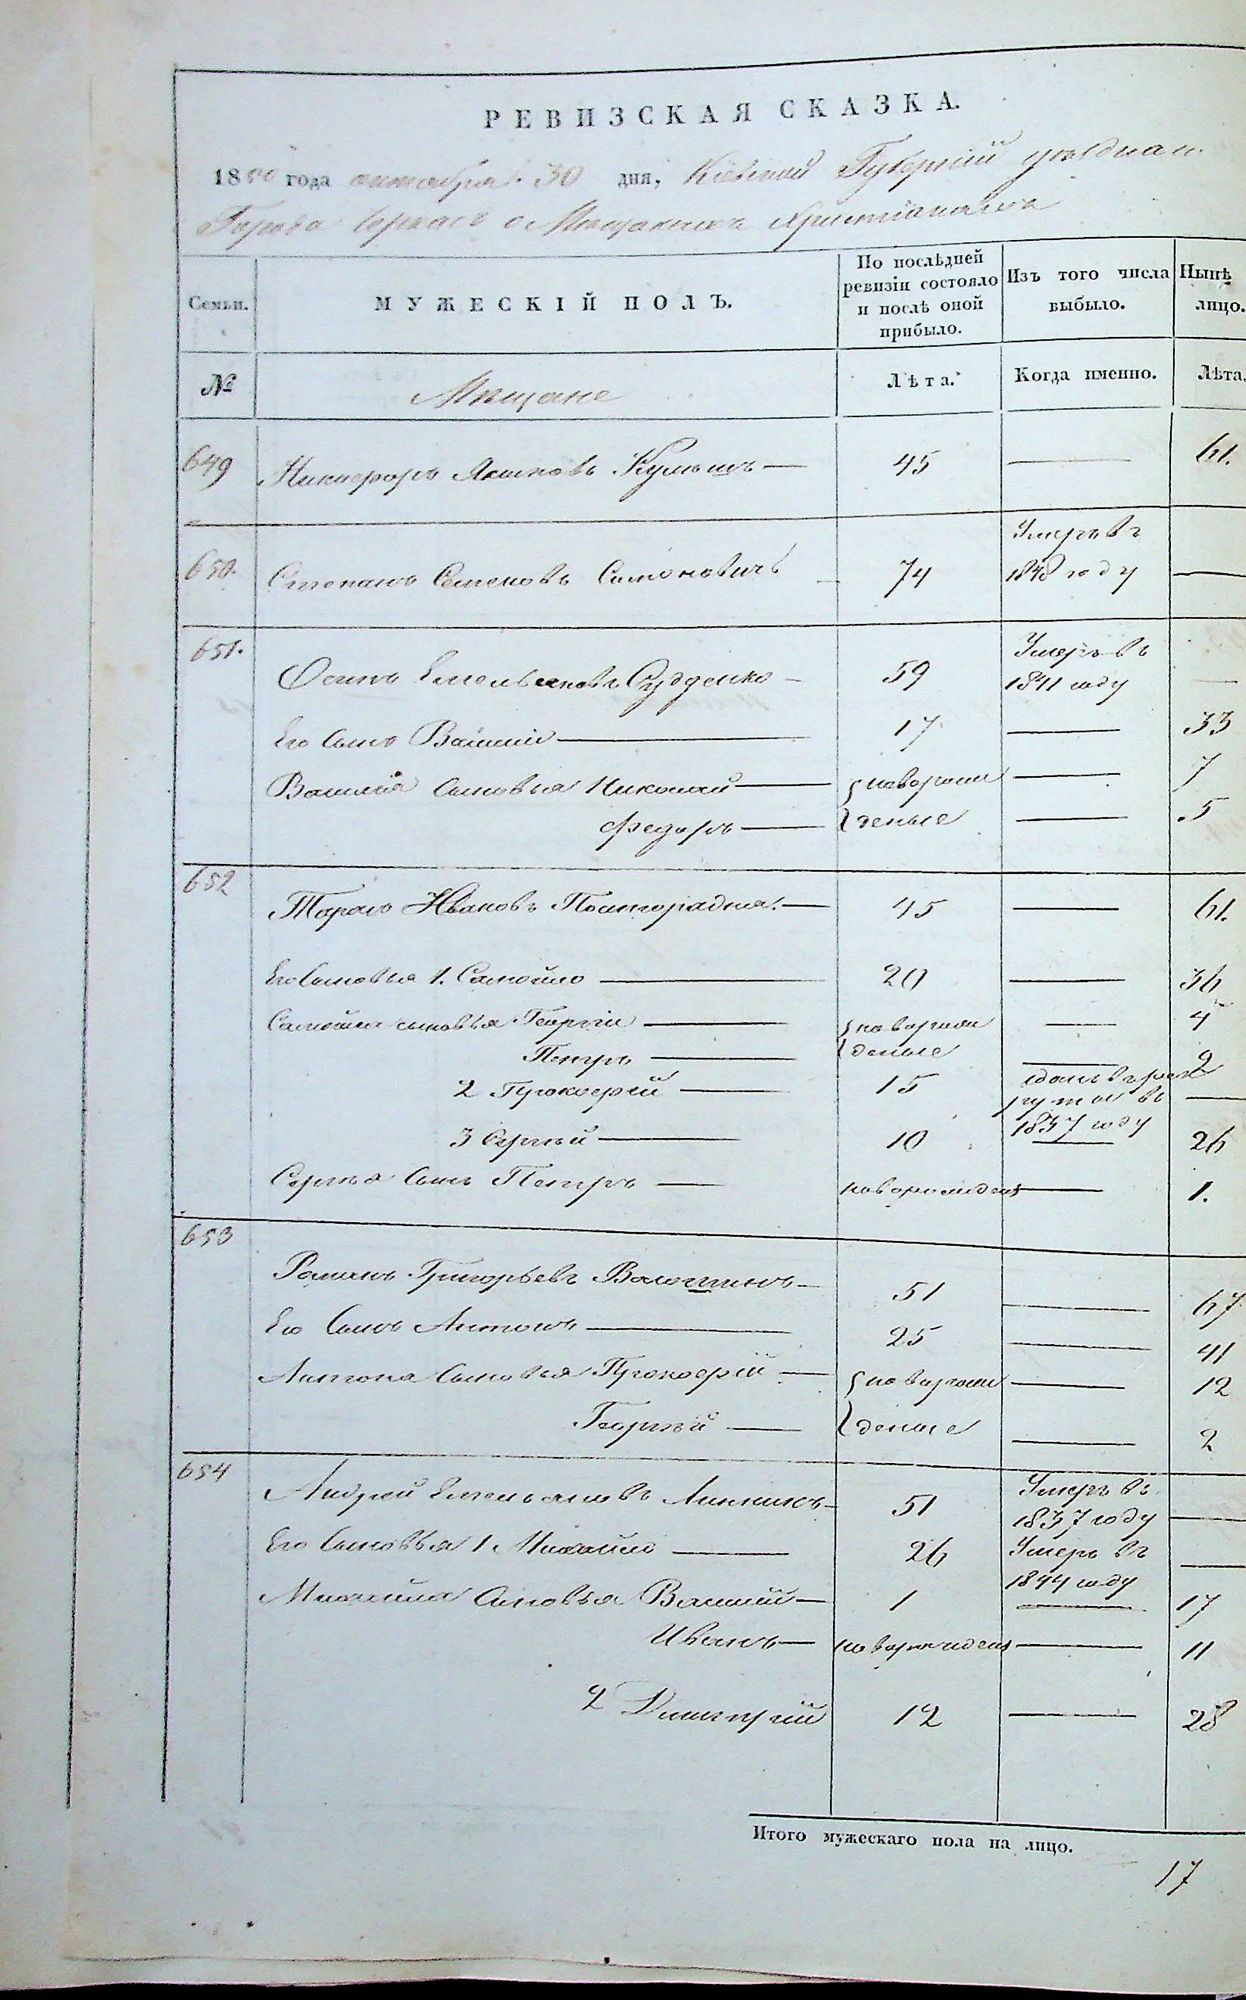 РЕВИЗСКАЯ СКАЗКА.
1850 года октября 30 дня, Кіевской Губерніи уѣзднаго
Города Черкасъ о Мѣщанахъ Христіанахъ
Семьи. МУЖЕСКІЙ ПОЛЪ. По послѣдней ревизіи состояло и послѣ оной прибыло. Изъ того числа выбыло. Нынѣ лицо.
№ Мѣщане Лѣта. Когда именно. Лѣта.
649 Никифоръ Якимовъ Кулишъ — 45 — 61.
650. Степанъ Семеновъ Симоновичъ — 74 Умеръ въ 1848 году —
651. Осипъ Емельяновъ Судденко — 59 Умеръ въ 1841 году —
Его Сынъ Василій — 17 — 33
Василія Сыновья Николай — новорож — 7
Федоръ — денные — 5
652 Тарасъ Ивановъ — 45 — 61.
Его Сыновья 1. Самойло — 20 — 36
Самойла сыновья Георгій — новорож — 4
Петръ — денные — 2
2 Прокофій — 15 сданъ въ рекруты въ 1837 году —
3 Сергѣй — 10 — 26
Сергѣя Сынъ Петръ — новорожден — 1.
653 Романъ Григорьевъ Волошинъ — 51 — 67
Его Сынъ Антонъ — 25 — 41
Антона Сыновья Прокофій — новорож — 12
Георгій — денные — 2
654 Андрей Емельяновъ Линникъ — 51 Умеръ въ 1837 году —
Его Сыновья 1 Михайло — 26 Умеръ въ 1844 году —
Михайла Сыновья Василій — 1 — 17
Иванъ — новорожден — 11
2 Дмитрій 12 — 28
Итого мужескаго пола на лицо.
17